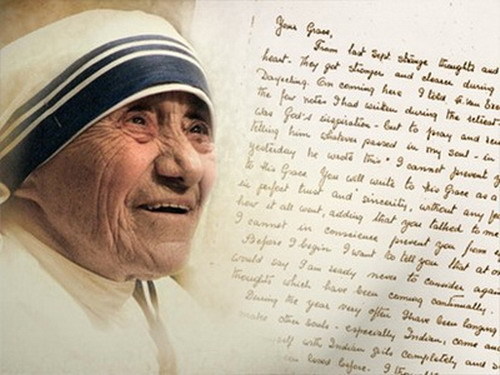 Your Grace,
From last Sept. strange thoughts and
heart. They get stronger and clearer during
Darjeeling. On coming here I told, &. Van Ex
the few notes I had written during the retreat-
was God's inspiration - but to pray and
telling him whatever passed in my soul - in
yesterday he wrote this " I cannot prevent
to His Grace. You will write to His Grace as a
in perfect trust and sincerity, without any
how it all went, adding that you talked to me
I cannot in conscience prevent you from
Before I begin I want to tell you that at
would say I am ready never to consider again
thoughts which have been coming continually.
During the year very often I have been longing
make other souls - especially Indian, come and
with Indian girls completely and
loved before. I